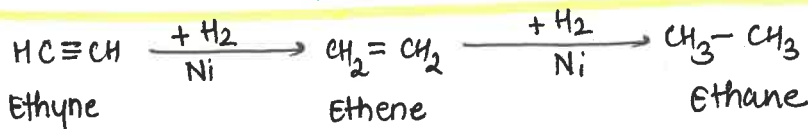 HC≡CH + H2 Ni CH2 = CH2 + H2 Ni CH3 – CH3
Ethyne Ethene Ethane